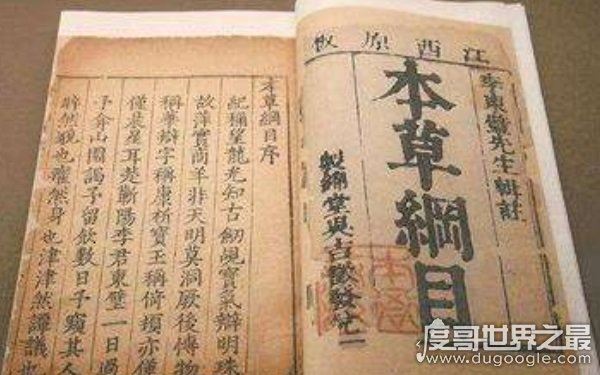 江西原板
李東璧先生輯註
本草綱目
本草綱目序
紀稱望龍光知古劍覘寶氣辯明珠
故萍實商羊非天明莫洞厥後博物
稱華辯字稱康析寶玉稱倚頓亦僅
僅晨星耳楚蘄陽李君東璧一日過
予弇山園謁予留飲數日予窺其人
睟然貌也癯然身也津津然譚議也
度哥世界之最
www.dugoogle.com